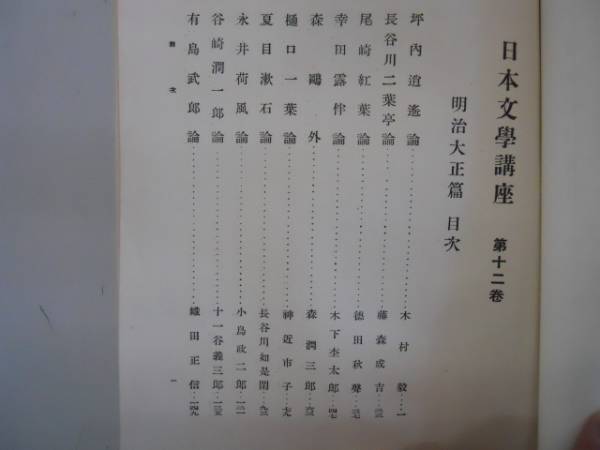 日本文學講座 第十二卷
明治大正篇 目次
坪內逍遙論……木村毅…一
長谷川二葉亭論……藤森成吉
尾崎紅葉論……德田秋聲
幸田露伴論……木下杢太郎
森鷗外……森潤三郎
樋口一葉論……神近市子
夏目漱石論……長谷川如是閑
永井荷風論……小島政二郎
谷崎潤一郎論……十一谷義三郎
有島武郎論……織田正信
目次
一